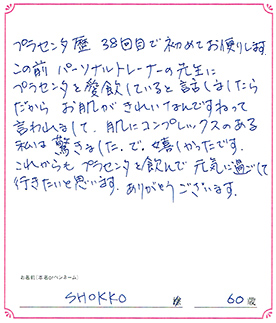 プラセンタ歴 38回目で初めてお便りします.
この前 パーソナルトレーナーの先生に
プラセンタを愛飲していると 話しましたら
だから お肌がきれいなんですねって
言われまして. 肌にコンプレックスのある
私は 驚きました.で.嬉しかったです.
これからも プラセンタを飲んで 元気に過ごして
行きたいと思います. ありがとうございます.
お名前(本名orペンネーム)
SHOKKO 様 60歳